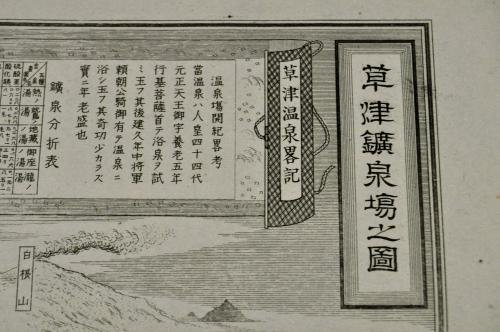 草津鑛泉塲之圖
草津温泉畧記
温泉塲開紀畧考
當温泉ハ人皇四十四代
元正天王御宇養老五年
行基菩薩首テ浴泉ヲ試
ミ玉フ其後建久年中将軍
頼朝公騎御有テ温泉ニ
浴シ玉フ其奇功少カラス
實ニ年老盛也
鑛泉分折表
白根山